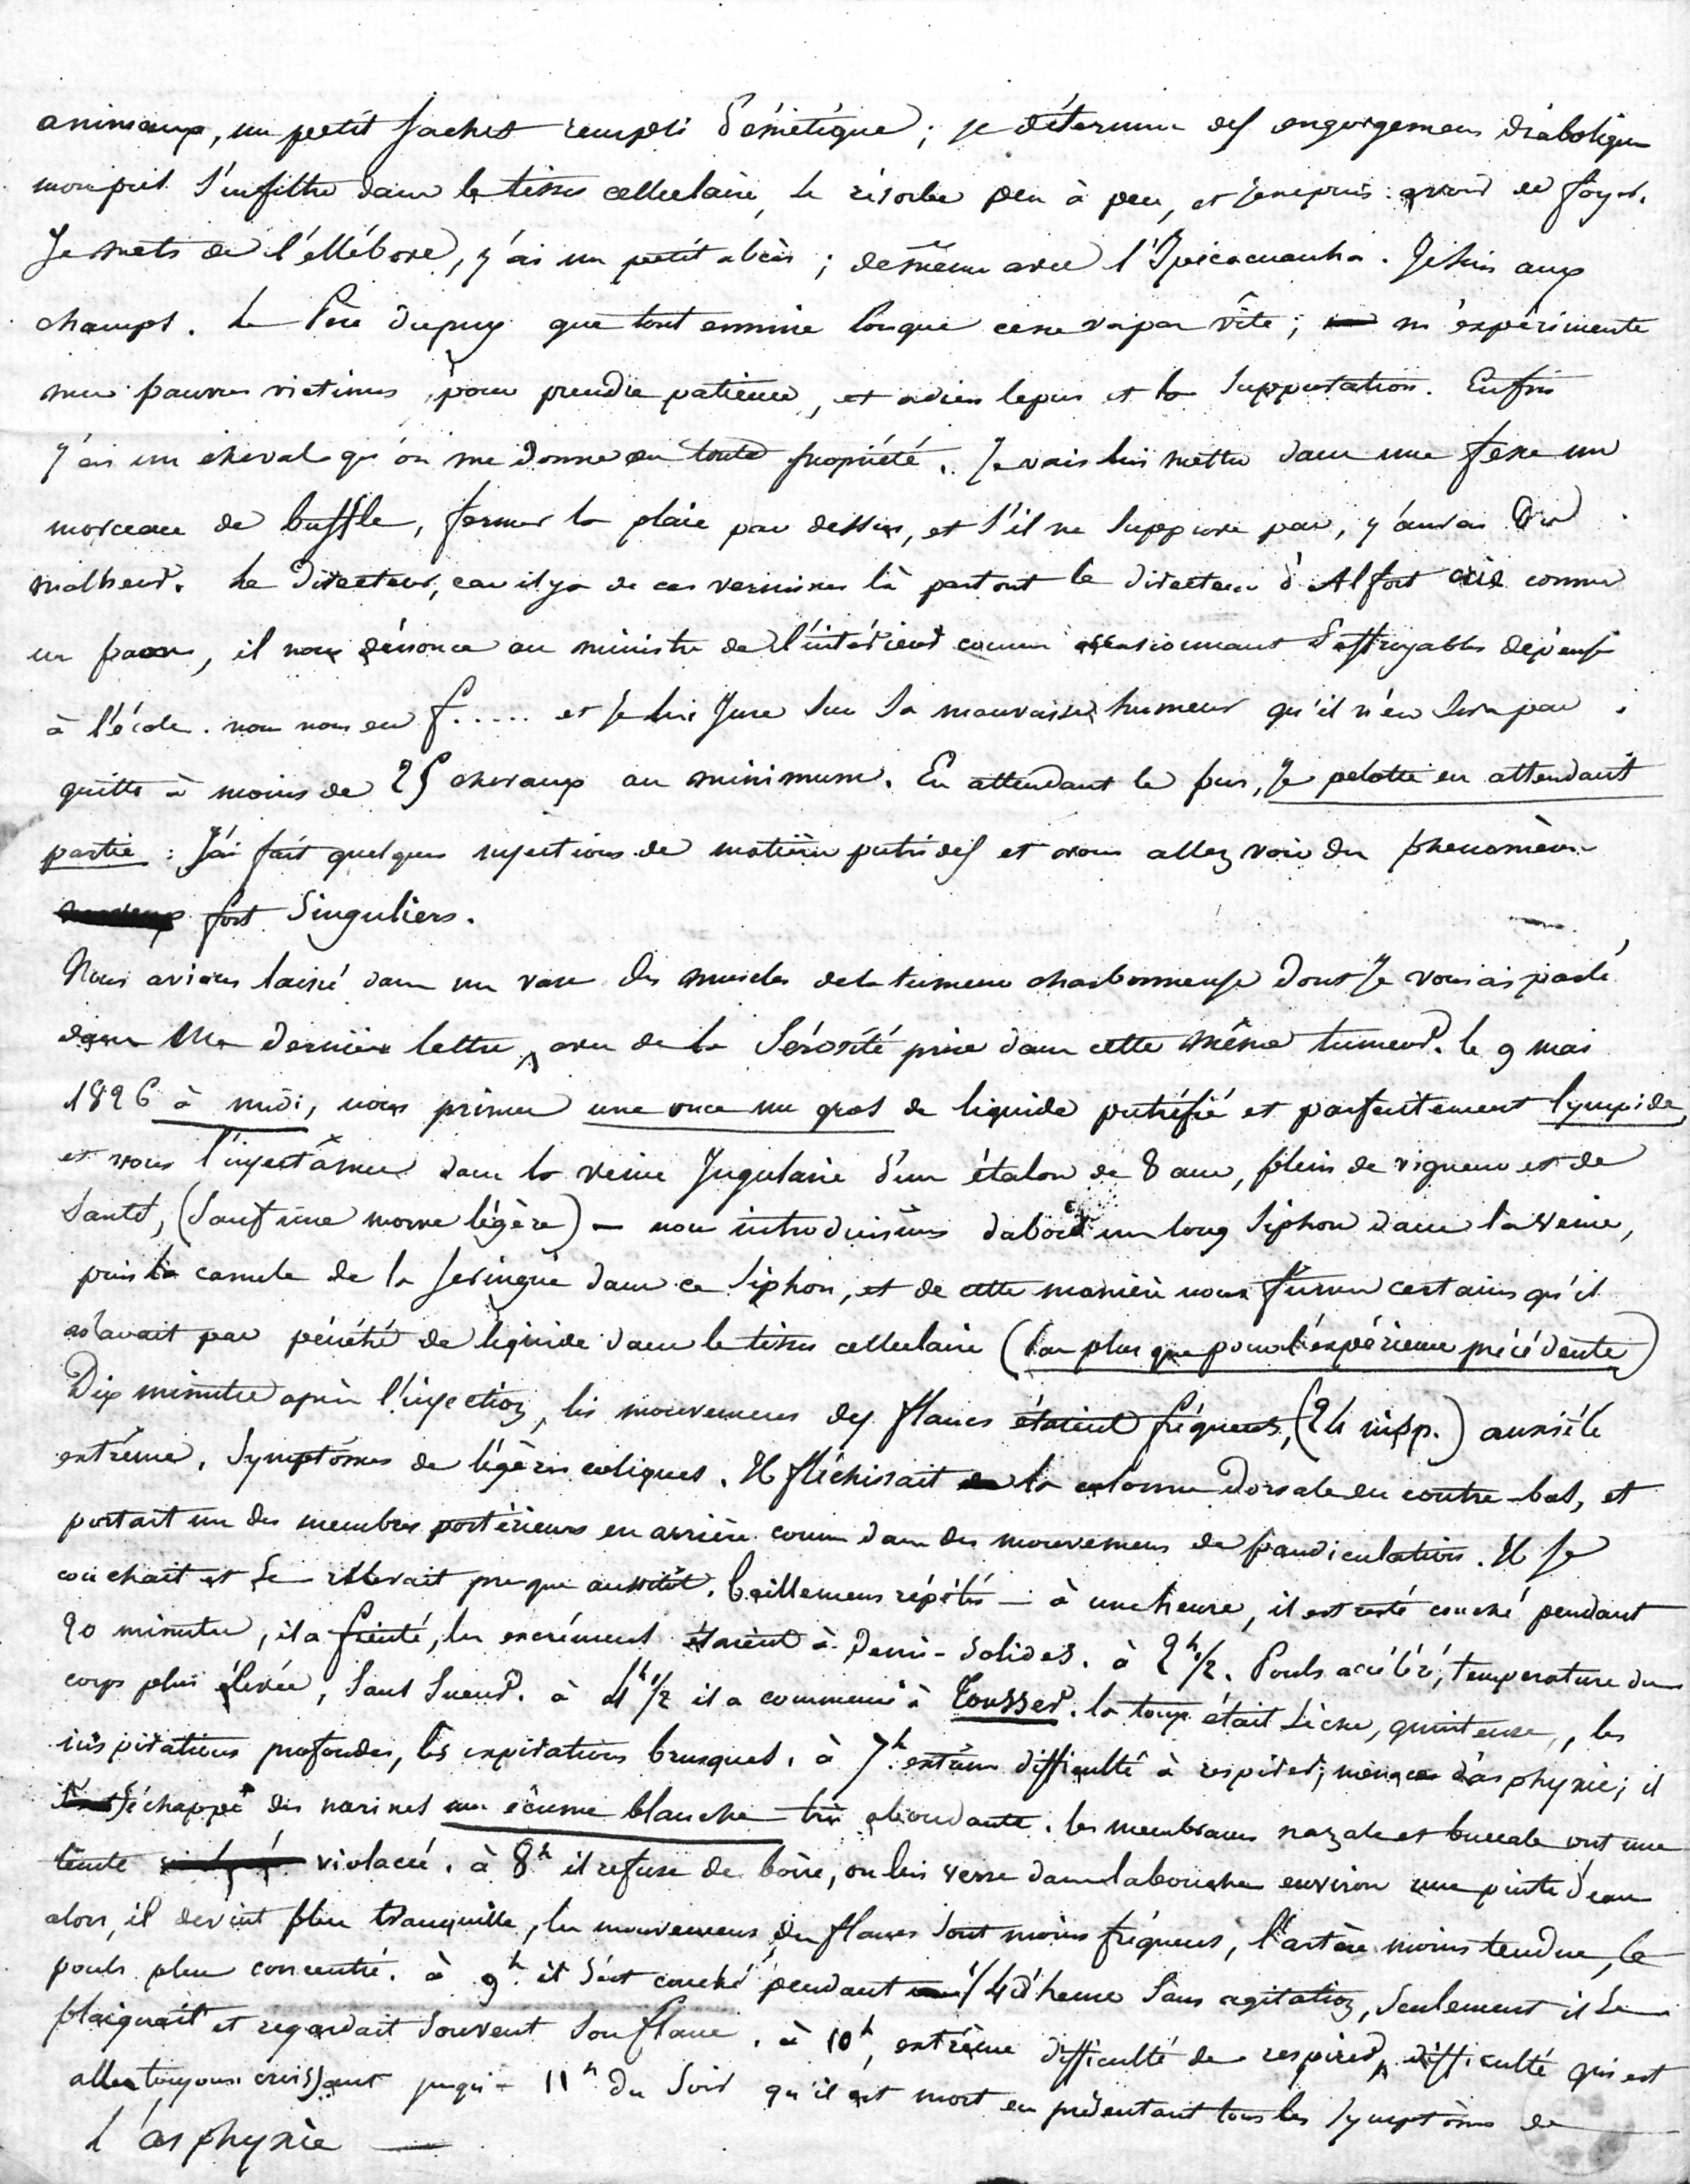 animaux, un petit sachet rempli d'émétique ; je détermine des engorgemens diaboliques
mon pus s'infiltre dans le tissu cellulaire, se résorbe peu à peu, et je ne puis avoir de foyer.
Je mets de l'ellébore, j'ai un petit abcès ; de même avec l'Ipécacuanha. Je suis aux
champs. Le Père Dupuy que tout ennuie lorsque ce ne va pas vite ; m'expérimente
mes pauvres victimes pour prendre patience, et adieu le pus et la suppuration. Enfin
j'ai un cheval qu'on me donne en toute propriété. Je vais lui mettre dans une fesse un
morceau de buffle, fermer la plaie par dessus, et s'il ne suppure pas, j'aurai du
malheur. Le Directeur, car il y a de ces vermines là partout le directeur d'Alfort crie comme
un paon, il nous dénonce au ministre de l'intérieur comme occasionnant d'effroyables dépenses
à l'école. nous nous en f..... et je lui jure sur sa mauvaise humeur qu'il n'en sera pas
quitte à moins de 25 chevaux au minimum. En attendant le pus, je pelotte en attendant
partie : J'ai fait quelques injections de matières putrides et vous allez voir des phénomènes
fort singuliers.
Nous avions laissé dans un vase des muscles de la tumeur charbonneuse dont je vous ai parlé
dans ma dernière lettre, avec de la sérosité prise dans cette même tumeur. le 9 mai
1826 à midi, nous primes une once un gros de liquide putréfié et parfaitement lympide,
et nous l'injectâmes dans la veine jugulaire d'un étalon de 8 ans, plein de vigueur et de
santé, (sauf une morve légère) — nous introduisimes d'abord un long siphon dans la veine,
puis la canule de la seringue dans ce siphon, et de cette manière nous fûmes certains qu'il
n'avait pas pénétré de liquide dans le tissu cellulaire (pas plus que pour l'expérience précédente)
Dix minutes après l'injection, les mouvemens des flancs étaient fréquens, (24 insp.) anxiété
extrême, symptômes de légères coliques. Il fléchissait la colonne dorsale en contre-bas, et
portait un des membres postérieurs en arrière comme dans des mouvemens de pandiculation. Il se
couchait et se relevait presque aussitôt. bâillemens répétés — à une heure, il est resté couché pendant
20 minutes, il a fienté, les excrémens étaient à demi-solides. à 2h ½. Pouls accéléré, température du
corps plus élevée, sans sueur. à 4h ½ il a commencé à tousser. la toux était sèche, quinteuse, les
inspirations profondes, les expirations brusques. à 7h extrême difficulté à respirer ; menaces d'asphyxie ; il
s'échappe des narines une écume blanche très abondante. les membranes nazale et buccale ont une
teinte violacée. à 8h il refuse de boire, on lui verse dans la bouche environ une pinte d'eau
alors, il devint plus tranquille, les mouvemens des flancs sont moins fréquens, l'artère moins tendue, le
pouls plus concentré. à 9h il s'est couché pendant 1/4 d'heure sans agitation, seulement il se
plaignait et regardait souvent son flanc. à 10h, extrême difficulté de respirer, difficulté qui est
allée toujours croissant jusqu'à 11h du soir qu'il est mort en présentant tous les symptômes de
l'asphyxie —